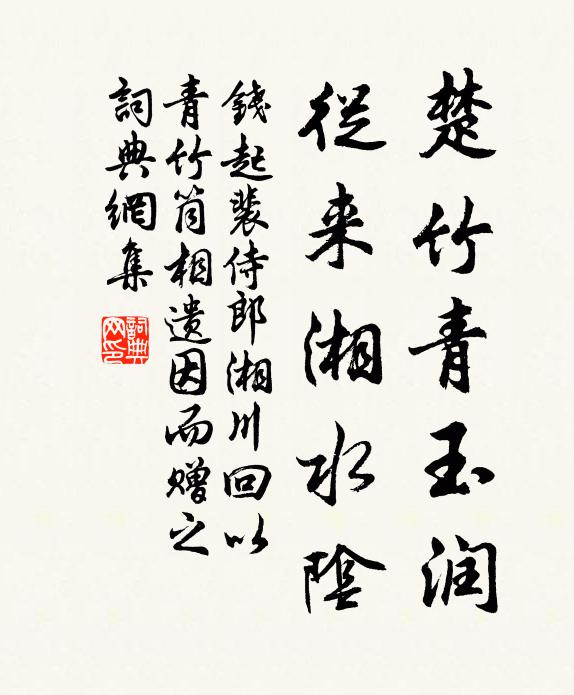 楚竹青玉润
從来湘水陰
錢起裴侍郎湘川回以
青竹筒相遗因而赠之
詞典網集
詞典网印